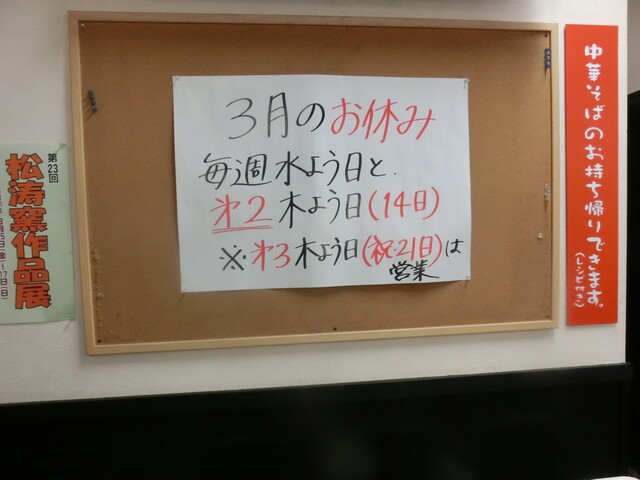 3月のお休み
毎週水よう日と、
㐧2 木よう日(14日)
※㐧3木よう日(祝・21日)は
営業
中華そばのお持ち帰りできます。
(レシピ付き)
第23回
松涛窯作品展